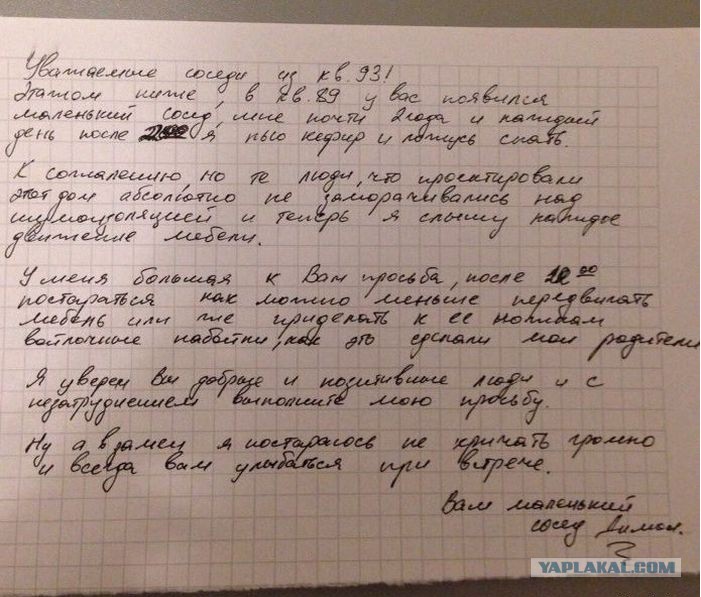 Уважаемые соседи из кв. 93!
Этажом ниже, в кв. 89 у вас появился
маленький сосед, мне почти 2 года и каждый
день после я пью кефир и ложусь спать.
К сожалению, но те люди, что проектировали
этот дом абсолютно не заморачивались над
шумоизоляцией и теперь я слышу каждое
движение мебели.
У меня большая к Вам просьба, после
постараться как можно меньше передвигать
мебель или же приделать к ее ножкам
войлочные набойки, как это сделали мои родители
Я уверен Вы добрые и позитивные люди и с
незатруднением выполните мою просьбу.
Ну а взамен я постараюсь не кричать громко
и всегда вам улыбаться при встрече.
Вам маленький
сосед Димон.
YAPLAKAL.COM